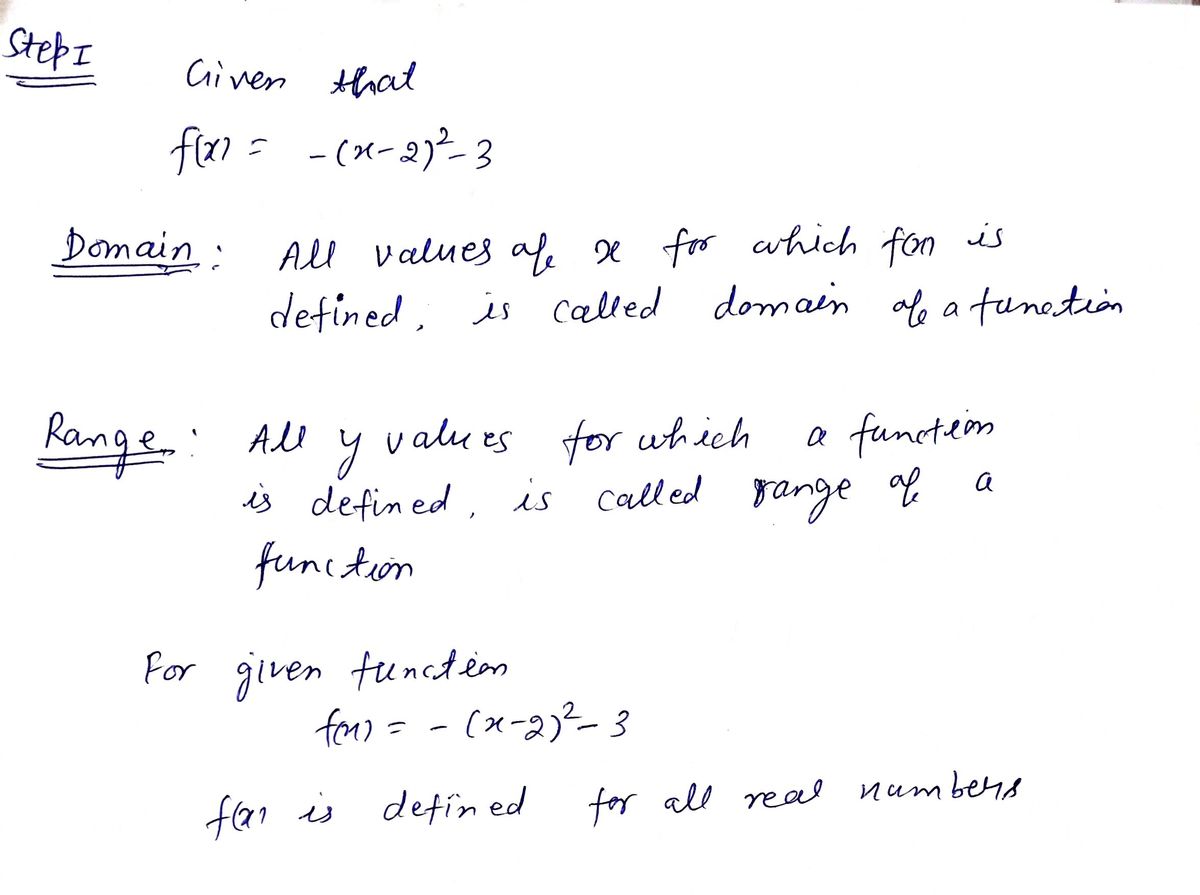 Step I
Given that
f(x) = -(x-2)²-3
Domain : All values of x for which f(x) is
defined, is called domain of a function
Range : All y values for which a function
is defined, is called range of a
function
For given function
f(x) = -(x-2)²-3
f(x) is defined for all real numbers